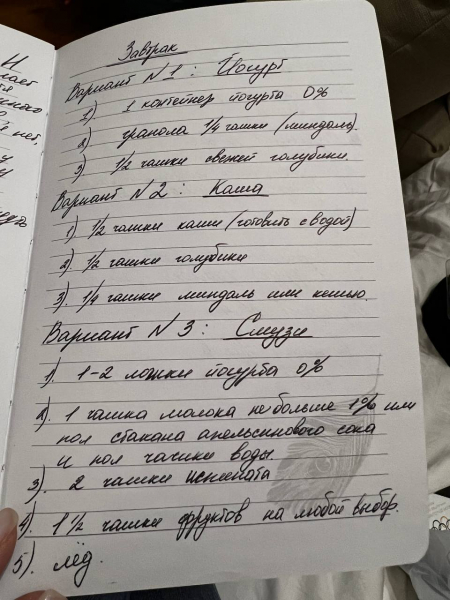 И
нает
ся
нного
в
й нет.
у
у
Завтрак
Вариант N1 : Йогурт
1) 1 контейнер йогурта 0%
2) гранола 1/4 чашки (миндаль).
3) 1/2 чашки свежей голубики.
Вариант N2 : Каша
1) 1/2 чашки каши (готовить с водой)
2) 1/2 чашки голубики
3) 1/4 чашки миндаль или кешью.
Вариант N3 : Смузи
1). 1-2 ложки йогурта 0%
2). 1 чашка молока не больше 1% или
пол стакана апельсинового сока
и пол чашки воды.
3). 2 чашки шпината
4). 1 1/2 чашки фруктов на любой выбор.
5). лёд.